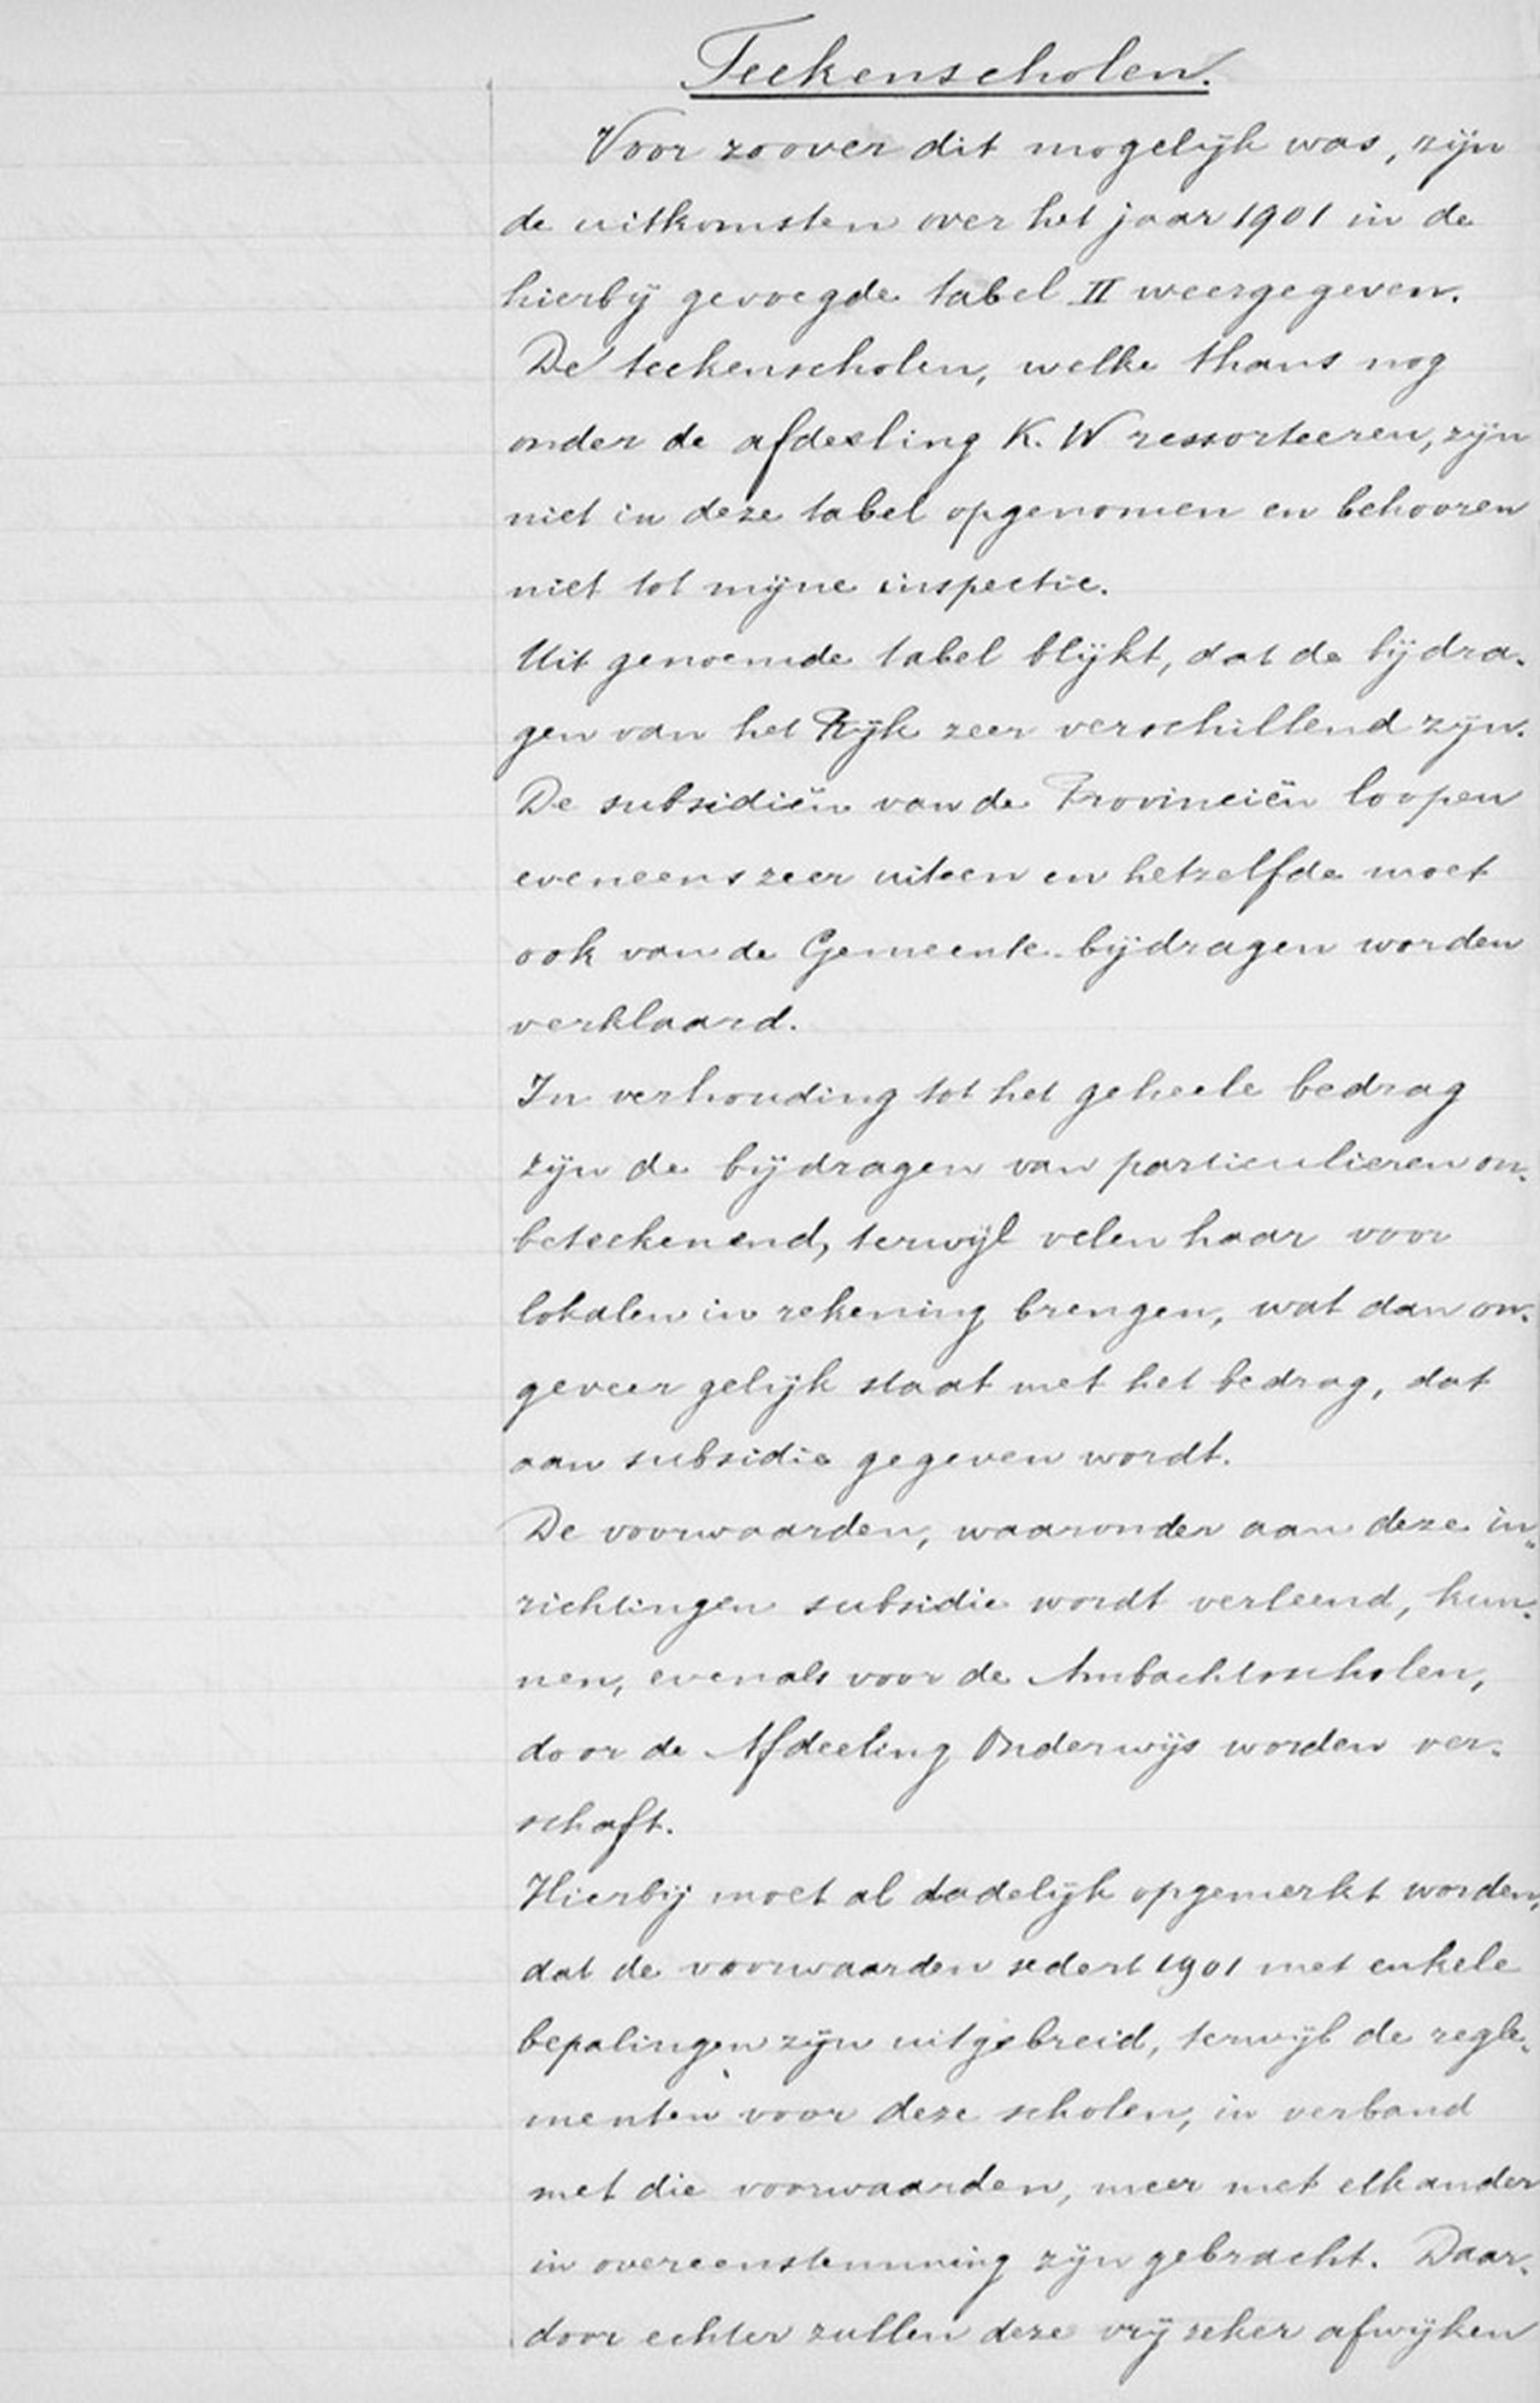 Teekenscholen.
Voor zoover dit mogelijk was, zijn
de uitkomsten over het jaar 1901 in de
hierbij gevoegde tabel II weergegeven.
De teekenscholen, welke thans nog
onder de afdeeling K. W ressorteeren, zijn
niet in deze tabel opgenomen en behooren
niet tot mijne inspectie.
Uit genoemde tabel blijkt, dat de bijdra-
gen van het Rijk zeer verschillend zijn.
De subsidiën van de Provinciën loopen
eveneens zeer uiteen en hetzelfde moet
ook van de Gemeente-bijdragen worden
verklaard.
In verhouding tot het geheele bedrag
zijn de bijdragen van particulieren on-
beteekenend, terwijl velen haar voor
lokalen in rekening brengen, wat dan on-
geveer gelijk staat met het bedrag, dat
aan subsidie gegeven wordt.
De voorwaarden, waaronder aan deze in-
richtingen subsidie wordt verleend, kun-
nen, evenals voor de Ambachtsscholen,
door de Afdeeling Onderwijs worden ver-
schaft.
Hierbij moet al dadelijk opgemerkt worden,
dat de voorwaarden sedert 1901 met enkele
bepalingen zijn uitgebreid, terwijl de regle-
menten voor deze scholen, in verband
met die voorwaarden, meer met elkander
in overeenstemming zijn gebracht. Daar-
door echter zullen deze vrij zeker afwijken